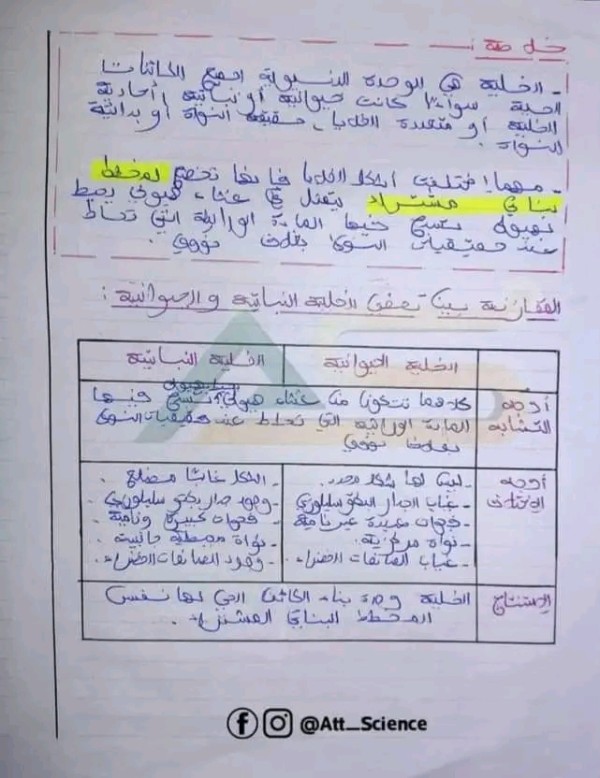 خلاصة :
- الخلية هي الوحدة البنيوية لجميع الكائنات
الحية سواءا كانت حيوانية أو نباتية، أحادية
الخلية أو متعددة الخلايا، حقيقية النواة أو بدائية
النواة.
- مهما اختلفت أشكال الخلايا فإنها تخضع لمخطط
بنائي مشترك يتمثل في غشاء هيولي يحيط
بهيولى تسبح فيها المادة الوراثية التي تحاط
عند حقيقيات النوى بغلاف نووي.
المقارنة بين تعضي الخلية النباتية والحيوانية :
الخلية الحيوانية
الخلية النباتية
أوجه
التشابه
كلاهما تتكون من غشاء هيولي يحيط بهيولى تسبح فيها
المادة الوراثية التي تحاط عند حقيقيات النوى
بغلاف نووي
أوجه
الاختلاف
- ليس لها شكل محدد.
- غياب الجدار البكتوسليلوزي
- فجوات عديدة غير نامية
- نواة مركزية.
- غياب الصانعات الخضراء.
- الشكل غالبا مضلع.
- وجود جدار بكتوسليلوزي.
- فجوات كبيرة ونامية.
- نواة محيطية جانبية.
- وجود الصانعات الخضراء.
الإستنتاج
الخلية وحدة بناء الكائن الحي لها نفس
المخطط البنائي المشترك.
@Att_Science